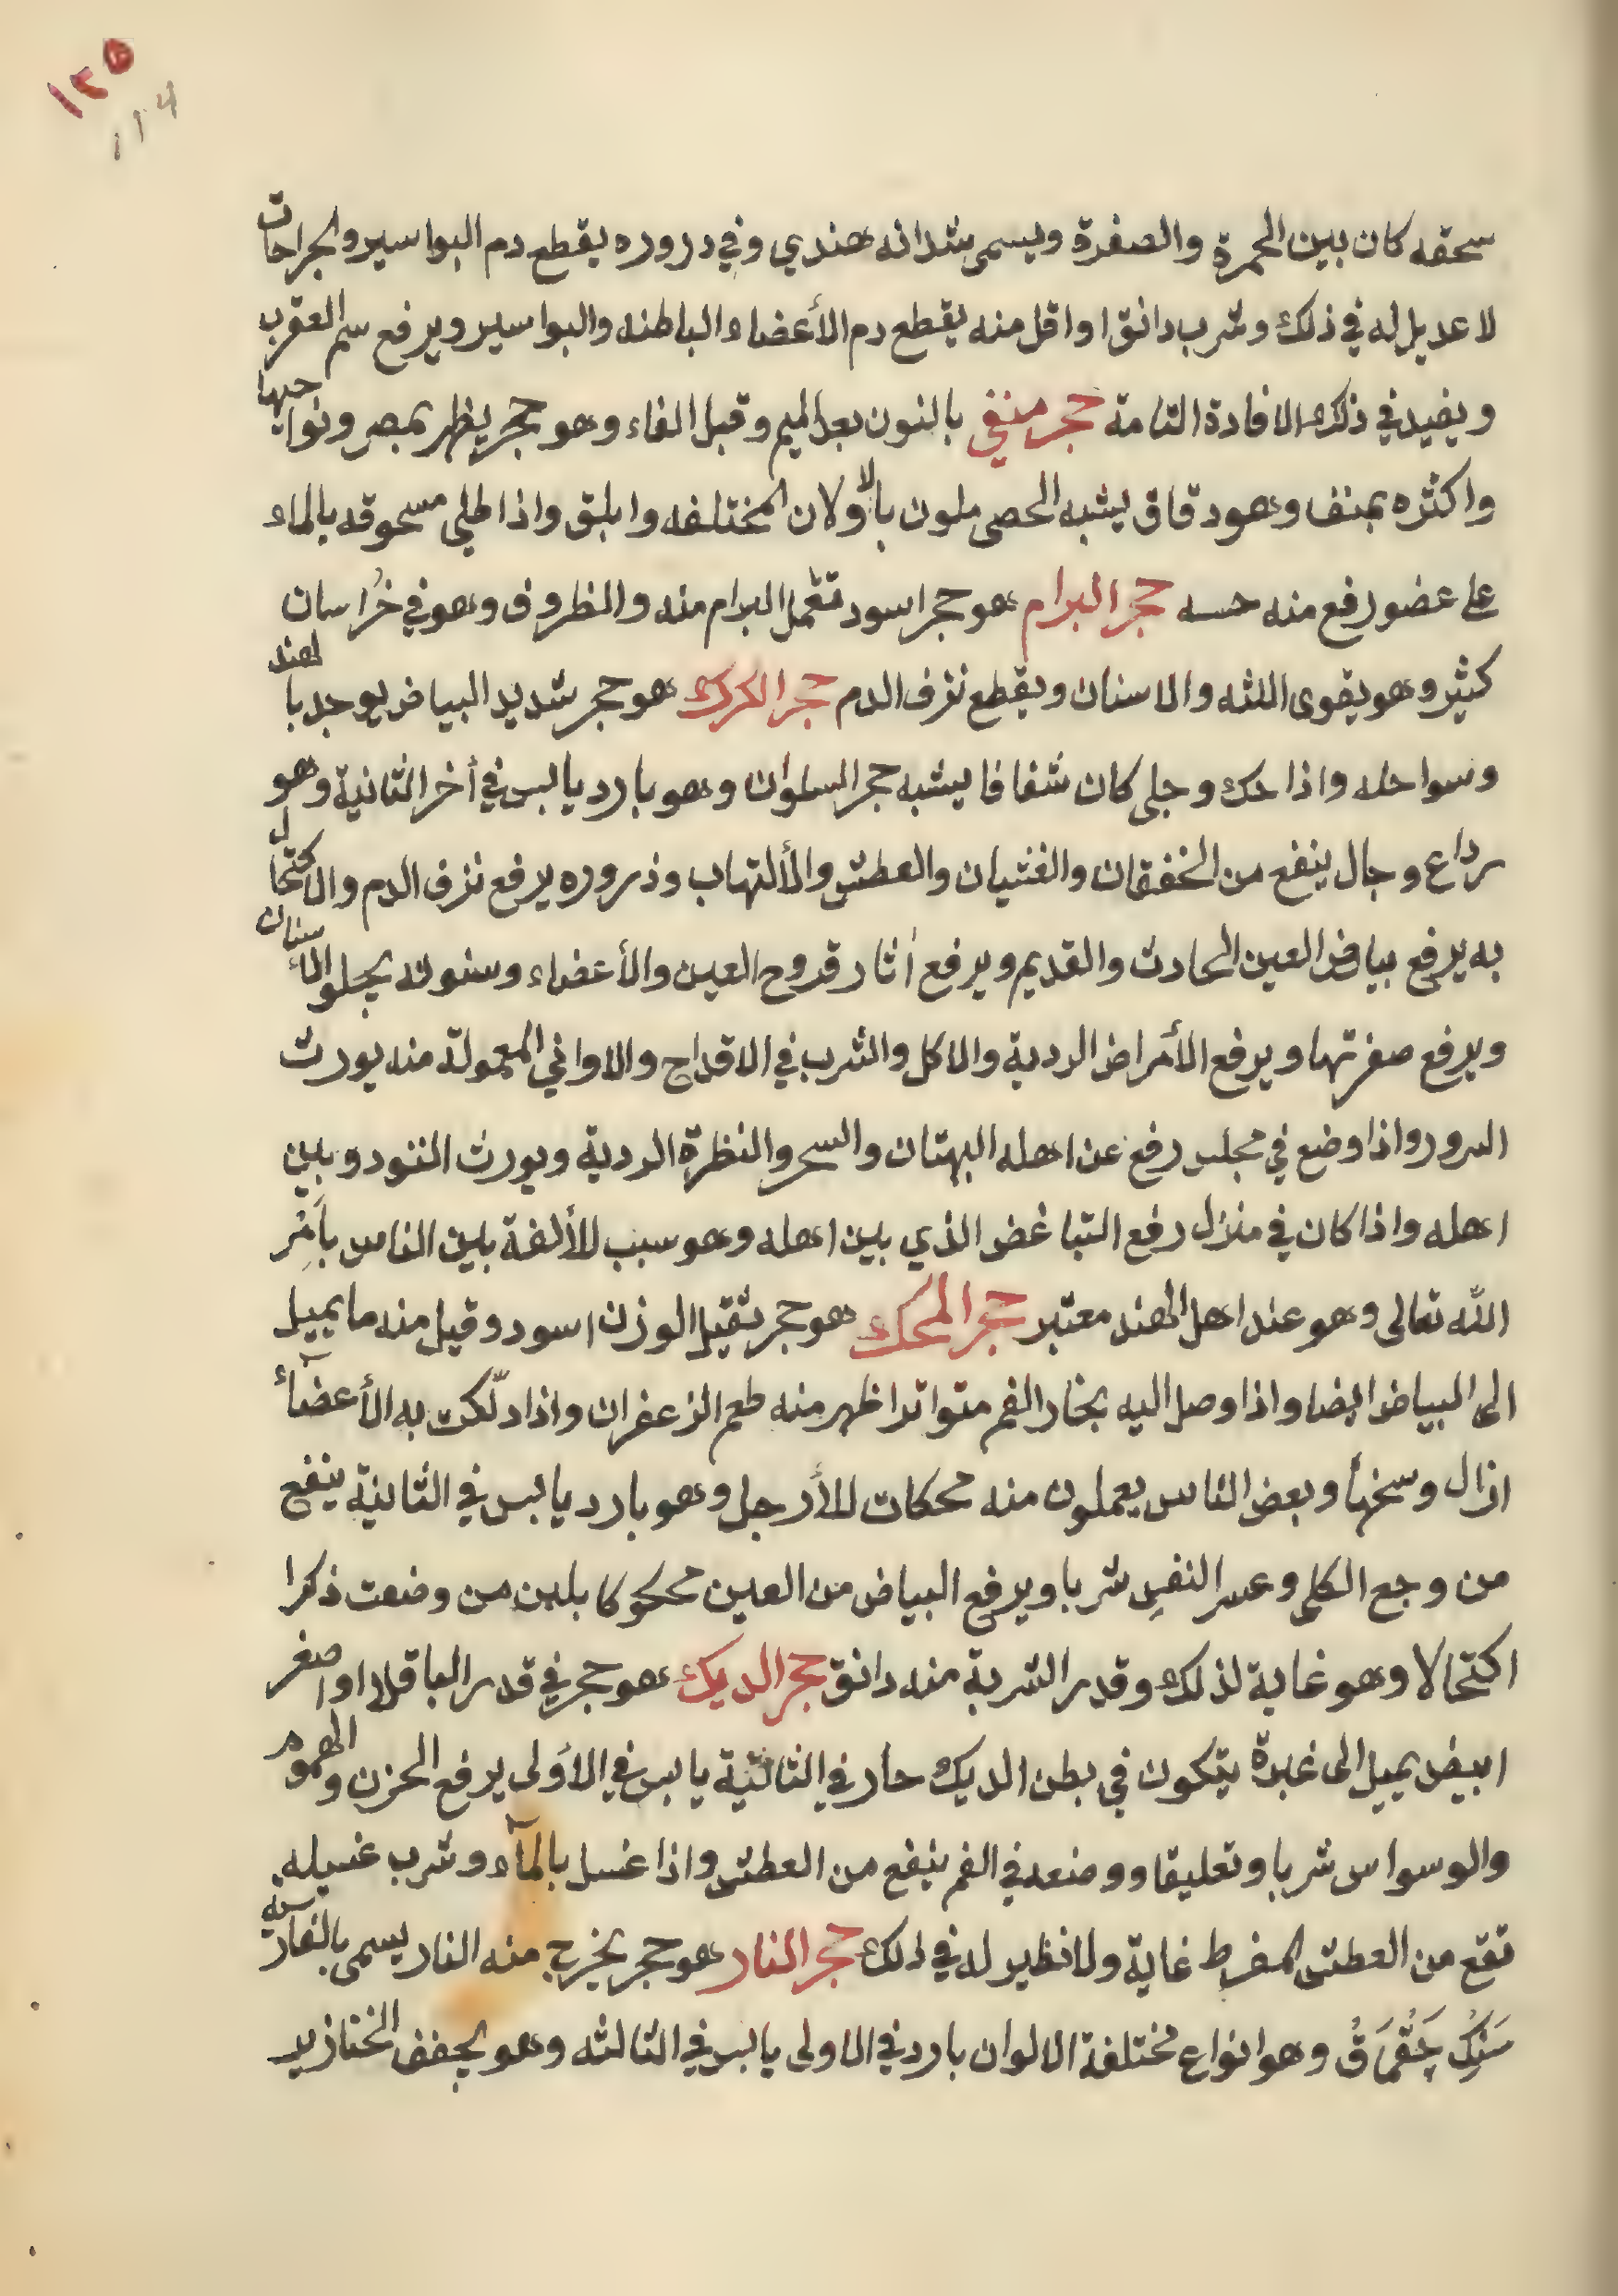 ١٢٥
١١٤
سحقه كان بين الحمرة والصفرة ويسمى شدانه هندي وفي دروره يقطع دم البواسير والجراحات
لا عديل له في ذلك وشرب دانق او اقل منه يقطع دم الأعضاء الباطنه والبواسير ويرفع سم العقرب
ويفيد في ذلك الافادة التامة حجر منفي بالنون بعد الميم وقبل الفاء وهو حجر يظهر بمصر ونواحيها
واكثره بمنف وهو دقاق يشبه الحصى ملون بالاولان المختلفه وابلق واذا طلي مسحوقه بالماء
على عضو رفع منه حسه حجر البرام هو حجر اسود تعمل البرام منه والظروف وهو في خُراسان
كثير وهو يقوى اللثه والاسنان ويقطع نزف الدم حجر الكرك هو حجر شديد البياض يوجد بالهند
وسواحله واذا حك وجلي كان شفافا يشبه حجر السلوان وهو بارد يابس في أخر الثانية وهو
رداع وجال ينفع من الخفقان والغثيان والعطش والألتهاب وذروره يرفع نزف الدم والأكتحال
به يرفع بياض العين الحادث والقديم ويرفع أثار قروح العين والأعضاء وسنونه يجلو الأسنان
ويرفع صفرتها ويرفع الأمراض الردية والاكل والشرب في الاقداح والاواني المعمولة منه يورث
السرور واذا وضع في مجلس رفع عن اهله البهتان والسحر والنظرة الردية ويورث التودد وبين
اهله واذا كان في منزل رفع التباغض الذي بين اهله وهو سبب للألفة بلين الناس بأمْرِ
اللّه تعالى وهو عند اهل الهند معتبر حجر المحك هو حجر ثقيل الوزن اسود وقيل منه ما يميل
الى البياض ايضا واذا وصل اليه بخار الفم متواترا ظهر منه طعم الزعفران واذا دلّكت به الأعضآء
ازال وسخها وبعض الناس يعملون منه محكات للأرجل وهو بارد يابس في الثانية ينفع
من وجع الكلى وعسر النفس شربا ويرفع البياض من العين محكوكا بلبن من وضعت ذكرا
اكتحالا وهو غاية لذلك وقدر الشربة منه دانق حجر الديك هو حجر في قدر الباقلا او اصغر
ابيض يميل الى غبرة يتكون في بطن الديك حار في الثالثية يابس في الأولى يرفع الحزن والهموم
والوسواس شربا وتعليقا ووضعه في الفم ينفع من العطش واذا غسل بالمآء وشرب غسيله
نفع من العطش المفرط غاية ولا نظير له في ذلك حجر النار هو حجر يخرج منه النار يسمى بالفارسية
سَنَكْ جَقْمَاقْ وهو انواع مختلفة الالوان بارد في الاولى يابس في الثالثه وهو يجفف الخنازير